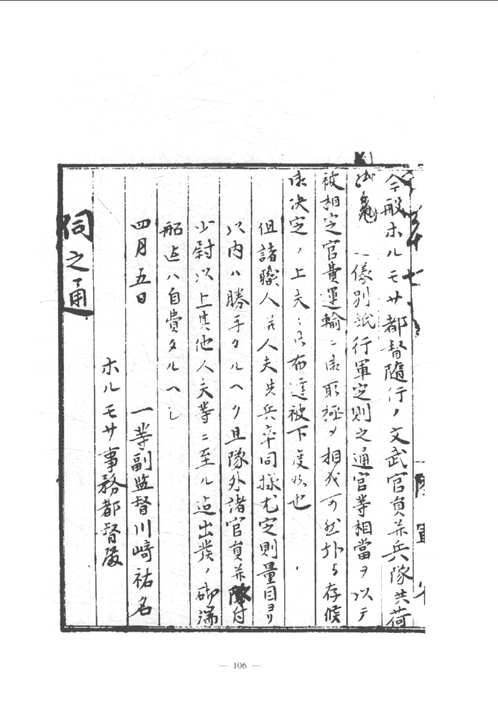 今般ホルモサ都督隨行ノ文武官員并兵隊共荷
一儀別紙行軍定則之通官等相當ヲ以テ
被相定官費運輸ニ
御決定ノ上夫々御布達被下度候也
但諸職人并人夫共兵卒同様尤定則量目ヨリ
以内ハ勝手タルヘク且隊外諸官員并隊付
少尉以上其他人夫等ニ至ル迄出発ノ砌
船迄ハ自費タルヘシ
四月五日
一等副監督川崎祐名
ホルモサ事務都督殿
伺之通
— 106 —